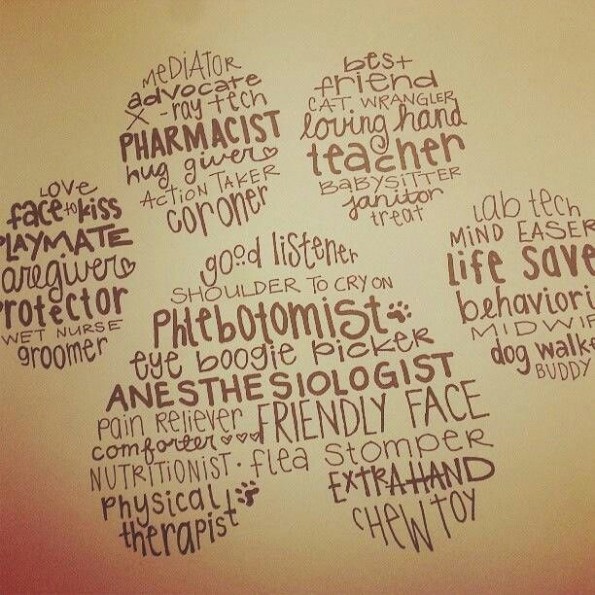 MEDIATOR
advocate
X-ray tech
PHARMACIST
hug giver
ACTION TAKER
coroner
best
friend
CAT WRANGLER
loving hand
teacher
BABYSITTER
janitor
treat
LOVE
face to kiss
PLAYMATE
caregiver
Protector
WET NURSE
groomer
lab tech
MIND EASER
life save
behaviori
MIDWIF
dog walke
BUDDY
good listener
SHOULDER TO CRY ON
Phlebotomist
eye boogie picker
ANESTHESIOLOGIST
pain reliever FRIENDLY FACE
comforter
NUTRITIONIST · flea stomper
physical EXTRA HAND
therapist CHEW TOY